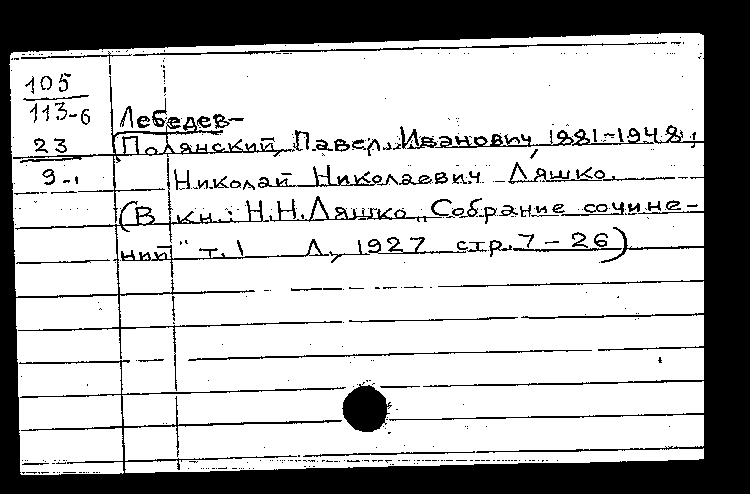 105
113-6
23
9-1
Лебедев-
Полянский, Павел Иванович, 1881-1948;
Николай Николаевич Ляшко.
(В кн.: Н.Н.Ляшко „Собрание сочине-
ний" т.1 Л., 1927 стр.7-26)